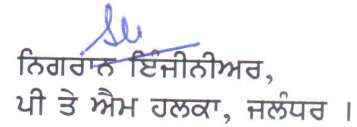 ਨਿਗਰਾਨ ਇੰਜੀਨੀਅਰ,
ਪੀ ਤੇ ਐਮ ਹਲਕਾ, ਜਲੰਧਰ ।